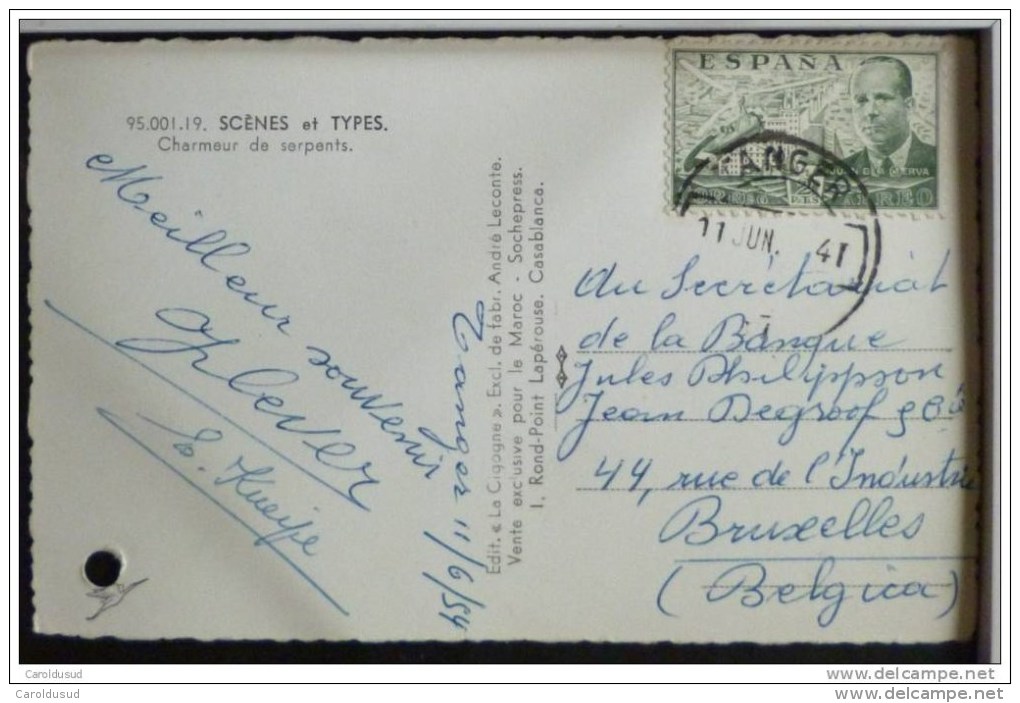 95.001.19. SCÈNES et TYPES.
Charmeur de serpents.
Meilleur souvenir
Tanger 11/6/54
Edit. « La Cigogne ». Excl. de fabr. André Leconte.
Vente exclusive pour le Maroc - Sochepress.
1, Rond-Point Lapérouse. Casablanca.
ESPAÑA
JUAN DE LA CIERVA
CORREO AEREO
2 PTS
TANGER
11 JUN. 41
Au Secrétariat
de la Banque
Jules Philippson
Jean Degroof & Cie
44, rue de l'Industrie
Bruxelles
(Belgica)
Caroldusud
Caroldusud
www.delcampe.net
www.delcampe.net